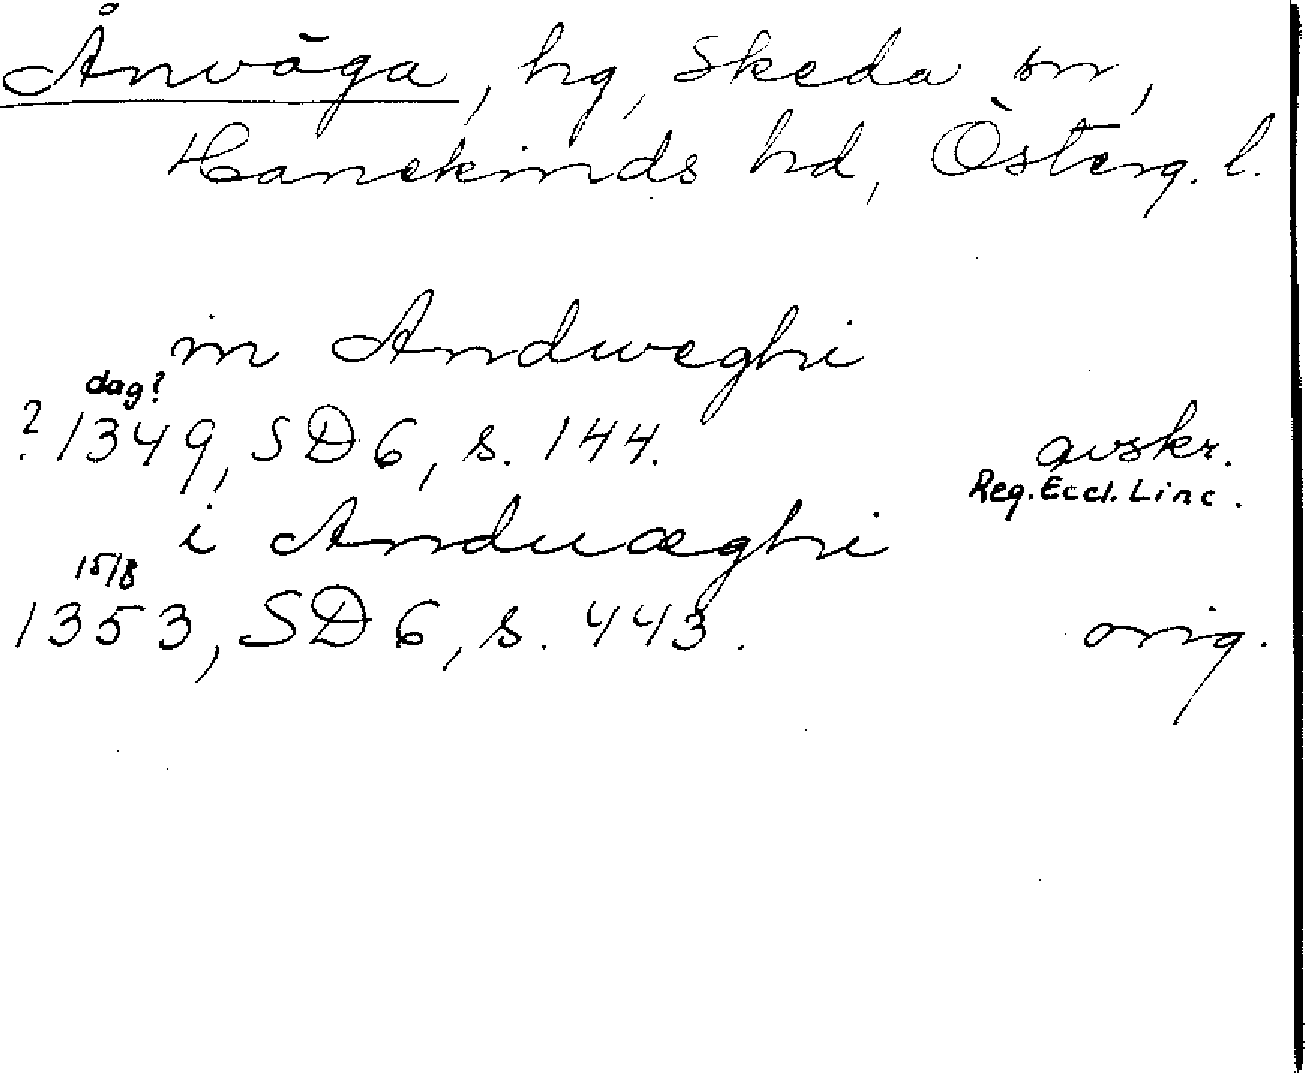 Ånväga, hg, Skeda sn,
Hanekinds hd, Österg. l.
in Andweghi
dag?
? 1349, SD 6, s. 144. avskr.
Reg. Eccl. Linc.
i Anduæghi
15/8
1353, SD 6, s. 443. orig.